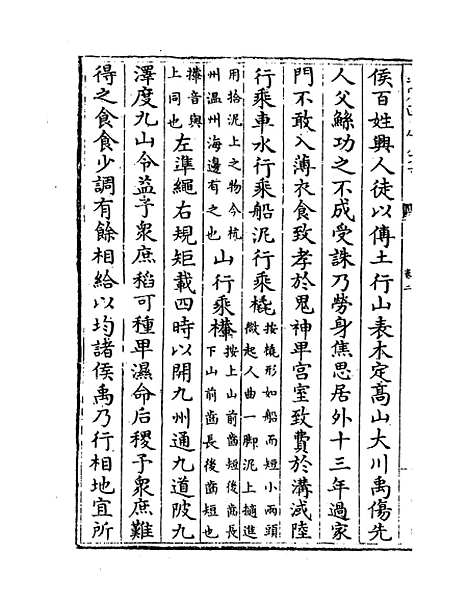 侯百姓興人徒以傅土行山表木定髙山大川禹傷先
人父鯀功之不成受誅乃勞身焦思居外十三年過家
門不敢入薄衣食致孝於鬼神卑宮室致費於溝淢陸
行乘車水行乘船泥行乘橇按橇形如船而短小兩頭微起人曲一脚泥上擿進
用拾泥上之物今杭州温州海邊有之也山行乘檋按上山前齒短後齒長下山前齒長後齒短也
檋音與上同也左準繩右規矩載四時以開九州通九道陂九
澤度九山令益予衆庶稻可種卑濕命后稷予衆庶難
得之食食少調有餘相給以均諸侯禹乃行相地宜所
卷二